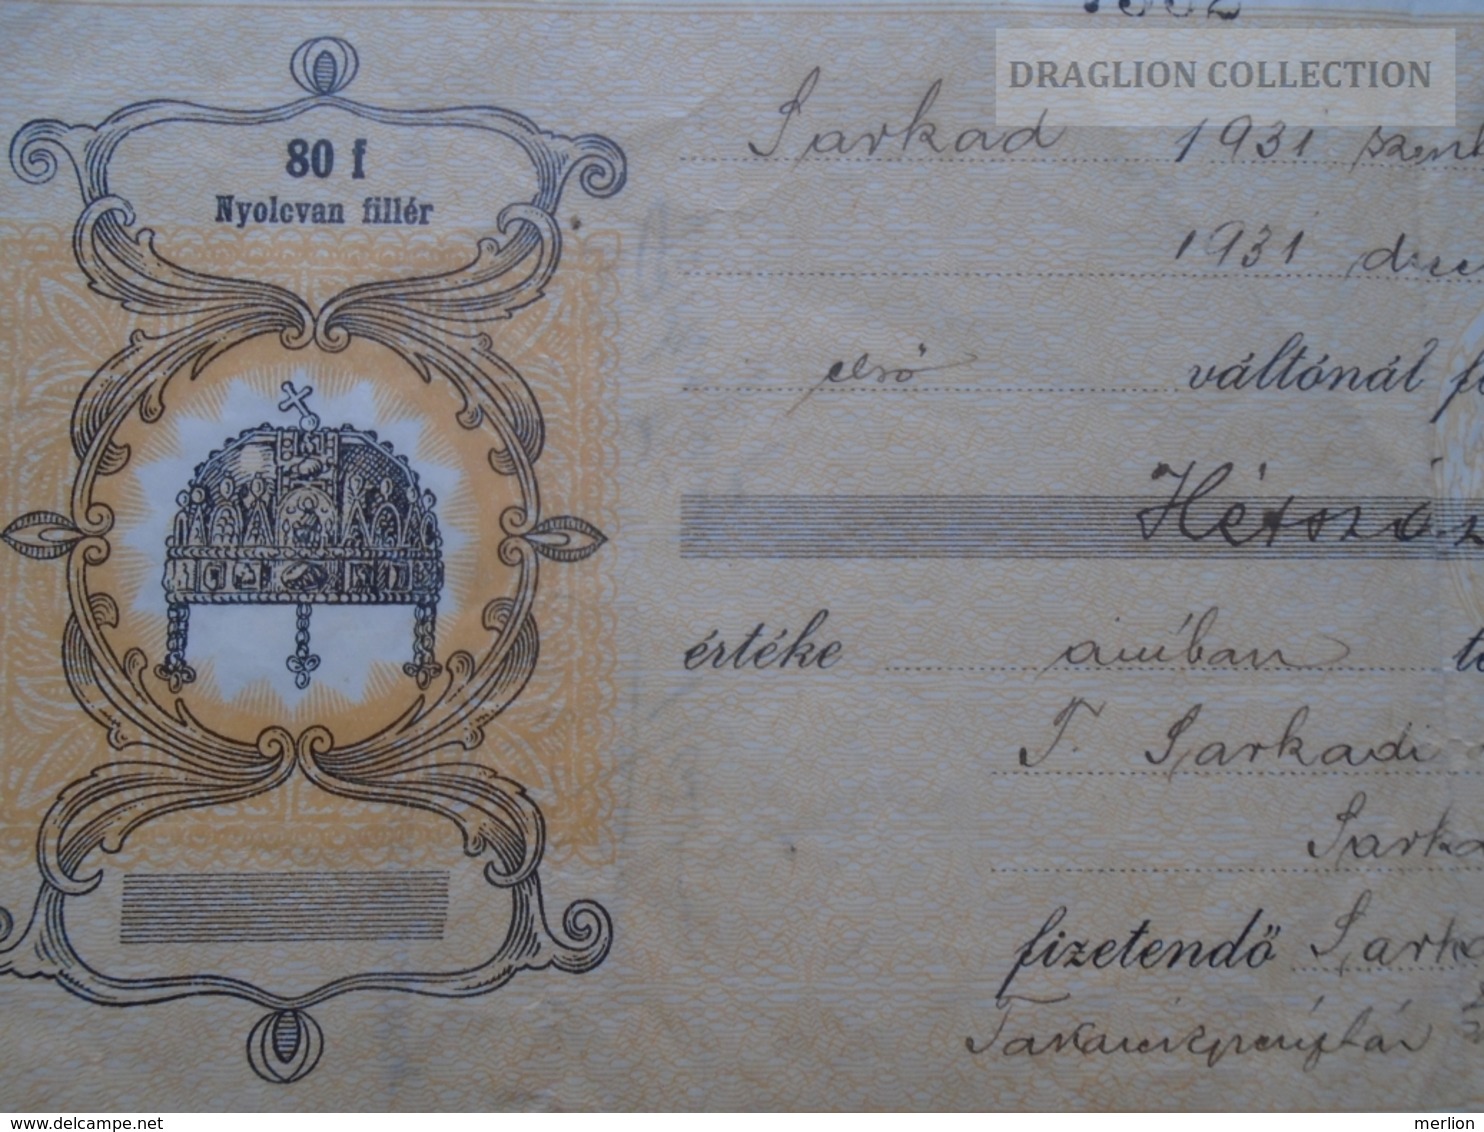 DRAGLION COLLECTION
80 f
Nyolcvan fillér
Sarkad 1931
1931
első váltónál
Hétszáz
értéke áruban
T. Sarkadi
fizetendő
Takarékpénztár
delcampe.net
merlion